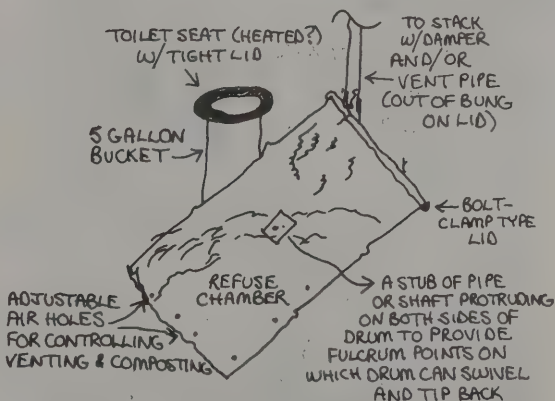 TOILET SEAT (HEATED?)
W/TIGHT LID
5 GALLON
BUCKET
TO STACK
W/DAMPER
AND/OR
VENT PIPE
(OUT OF BUNG
ON LID)
BOLT-
CLAMP TYPE
LID
REFUSE
CHAMBER
ADJUSTABLE
AIR HOLES
FOR CONTROLLING
VENTING & COMPOSTING
A STUB OF PIPE
OR SHAFT PROTRUDING
ON BOTH SIDES OF
DRUM TO PROVIDE
FULCRUM POINTS ON
WHICH DRUM CAN SWIVEL
AND TIP BACK